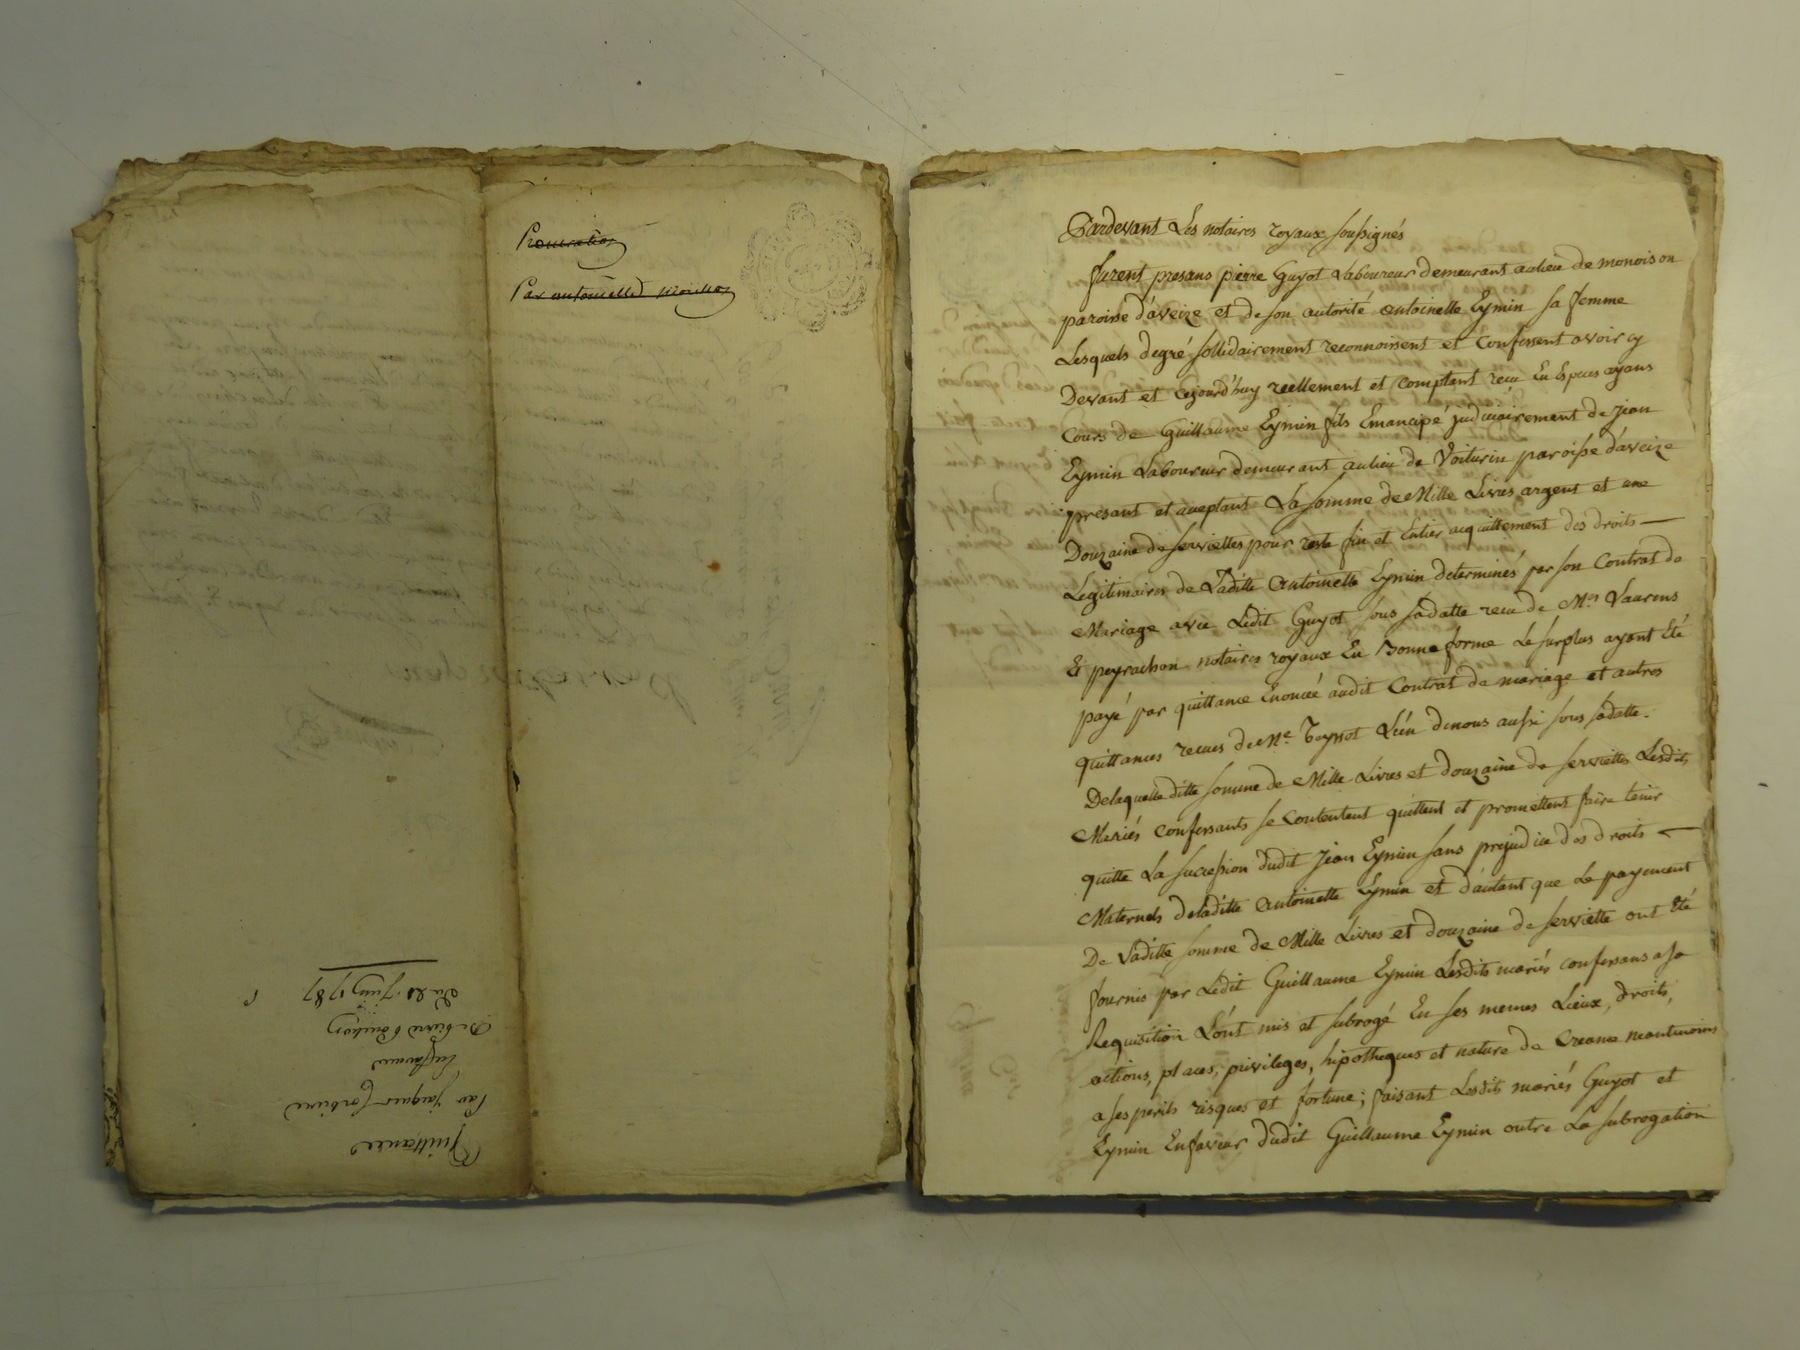 Procuration
Par antoinette
Quittance
Par jacques
En faveur
De pierre
Du 21 juin 1787
Pardevant Les notaires royaux soussignés
furent presans pierre Guyot Laboureur demeurant aulieu de monoison
paroisse d'aveize et de son autorité antoinette Eymin sa femme
Lesquels degré sollidairement reconnoissent et Confessent avoir cy
Devant et cejourd'huy reellement et comptant recu En Especes ayans
Cours de Guillaume Eymin fils Emancipé judiciairement de Jean
Eymin Laboureur demeurant aulieu de Voiturin paroisse d'aveize
présant et aceptant La somme de Mille Livres argent et une
Douzaine de serviettes pour reste fin et Entier acquittement des droits
Légitimaires de Laditte antoinette Eymin determinés par son Contrat de
Mariage avec Ledit Guyot sous sadatte recu de Mes Laurens
& peyrachon notaires royaux En Bonne forme Le surplus ayant Eté
payé par quittance Enoncée audit Contrat de mariage et autres
quittances recues de Me. Teyssot L'un denous aussi sous sadatte.
Delaquelle ditte somme de Mille Livres et douzaine de serviettes Lesdits
Mariés confessants se contentent quittent et promettent faire tenir
quitte La succession dudit Jean Eymin sans prejudice des droits
Maternels deladitte antoinette Eymin et d'autant que Le payement
De Laditte somme de Mille Livres et douzaine de serviette ont Eté
fournis par Ledit Guillaume Eymin Lesdits mariés confessans a sa
Requisition L'ont mis et subrogé En ses memes Lieux, droits,
actions, places, privileges, hipotheques et nature de Creance neantmoins
a ses perils risques et fortune; faisant Lesdits mariés Guyot et
Eymin Enfaveur dudit Guillaume Eymin outre La subrogation